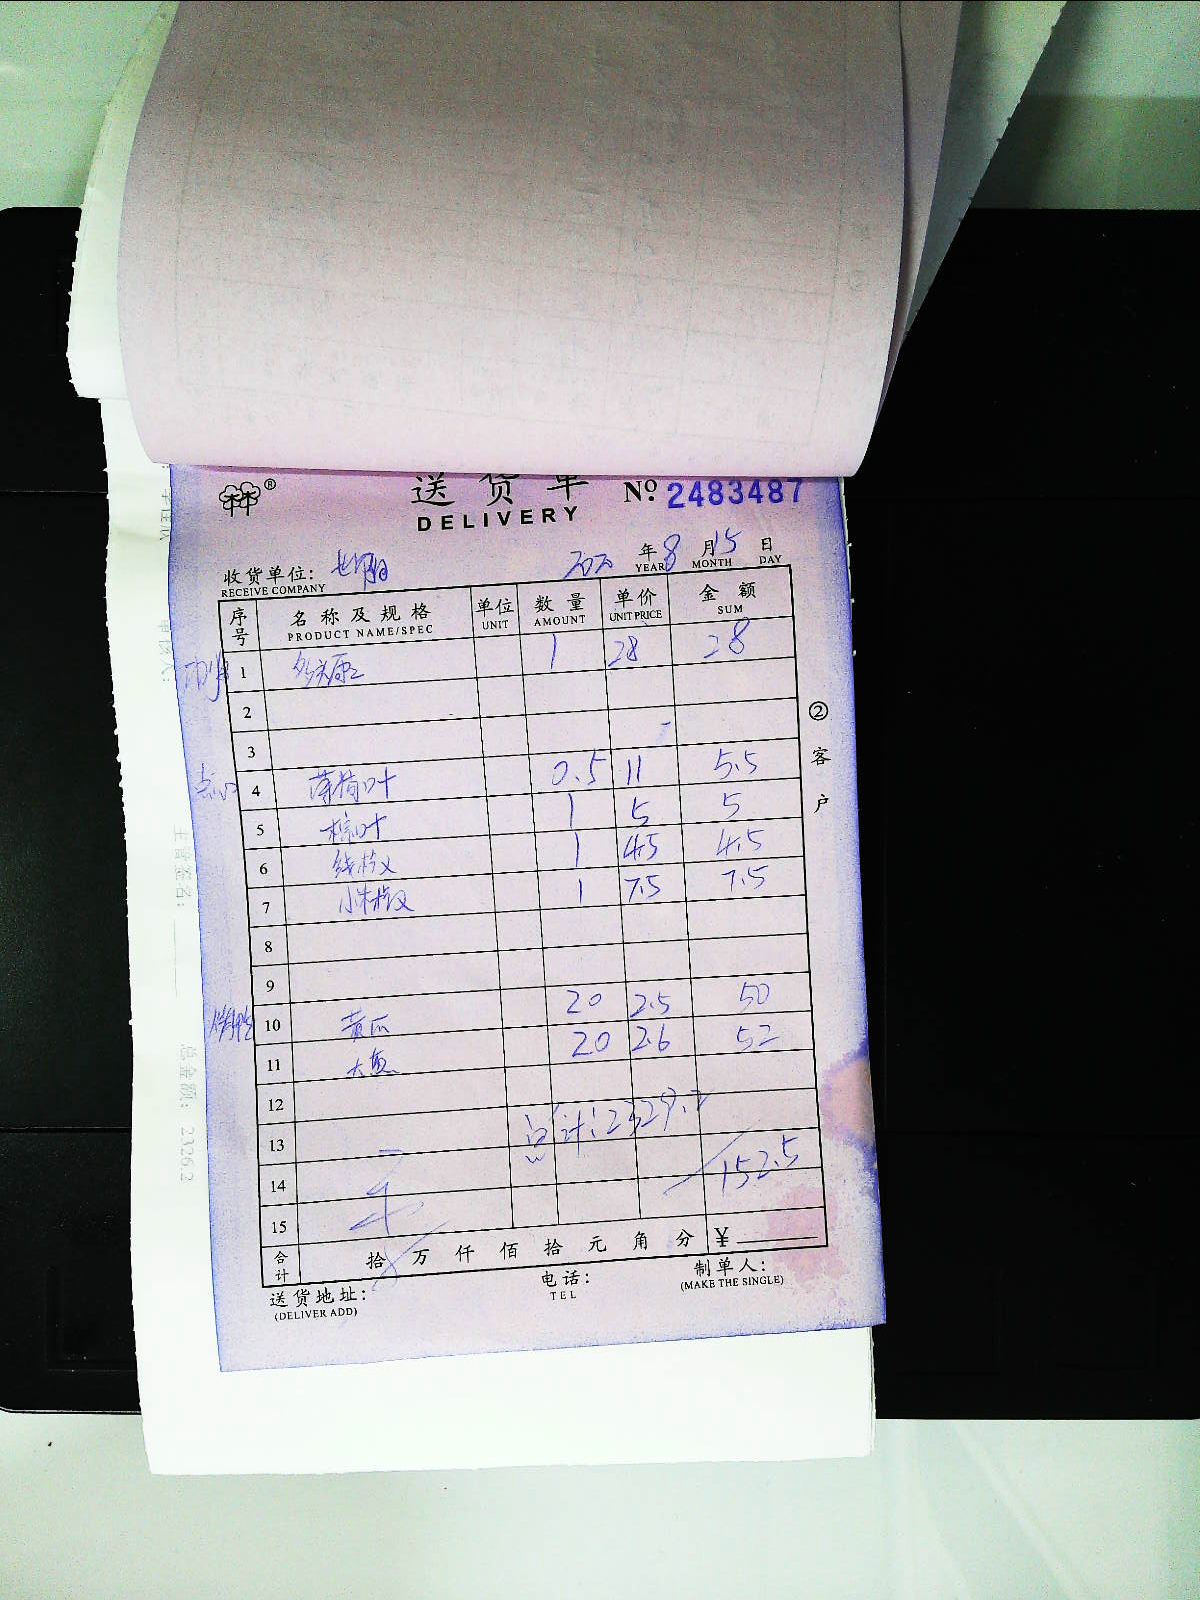 林®
送货单
DELIVERY
№ 2483487
收货单位:
RECEIVE COMPANY
年 8 月 15 日
YEAR MONTH DAY
序号 名称及规格 单位 数量 单价 金额
PRODUCT NAME/SPEC UNIT AMOUNT UNIT PRICE SUM
1 1 28 28
2
3
点心 4 薄荷叶 0.5 11 5.5
5 粽叶 1 5 5
6 线椒 1 4.5 4.5
7 小米椒 1 7.5 7.5
8
9
10 黄瓜 20 2.5 50
11 大葱 20 2.6 52
12
13 总计:2329.2
14 152.5
15
合计 拾 万 仟 佰 拾 元 角 分 ¥
送货地址:
(DELIVER ADD)
电话:
TEL
制单人:
(MAKE THE SINGLE)
②客户
主管签名:
总金额: 2326.2